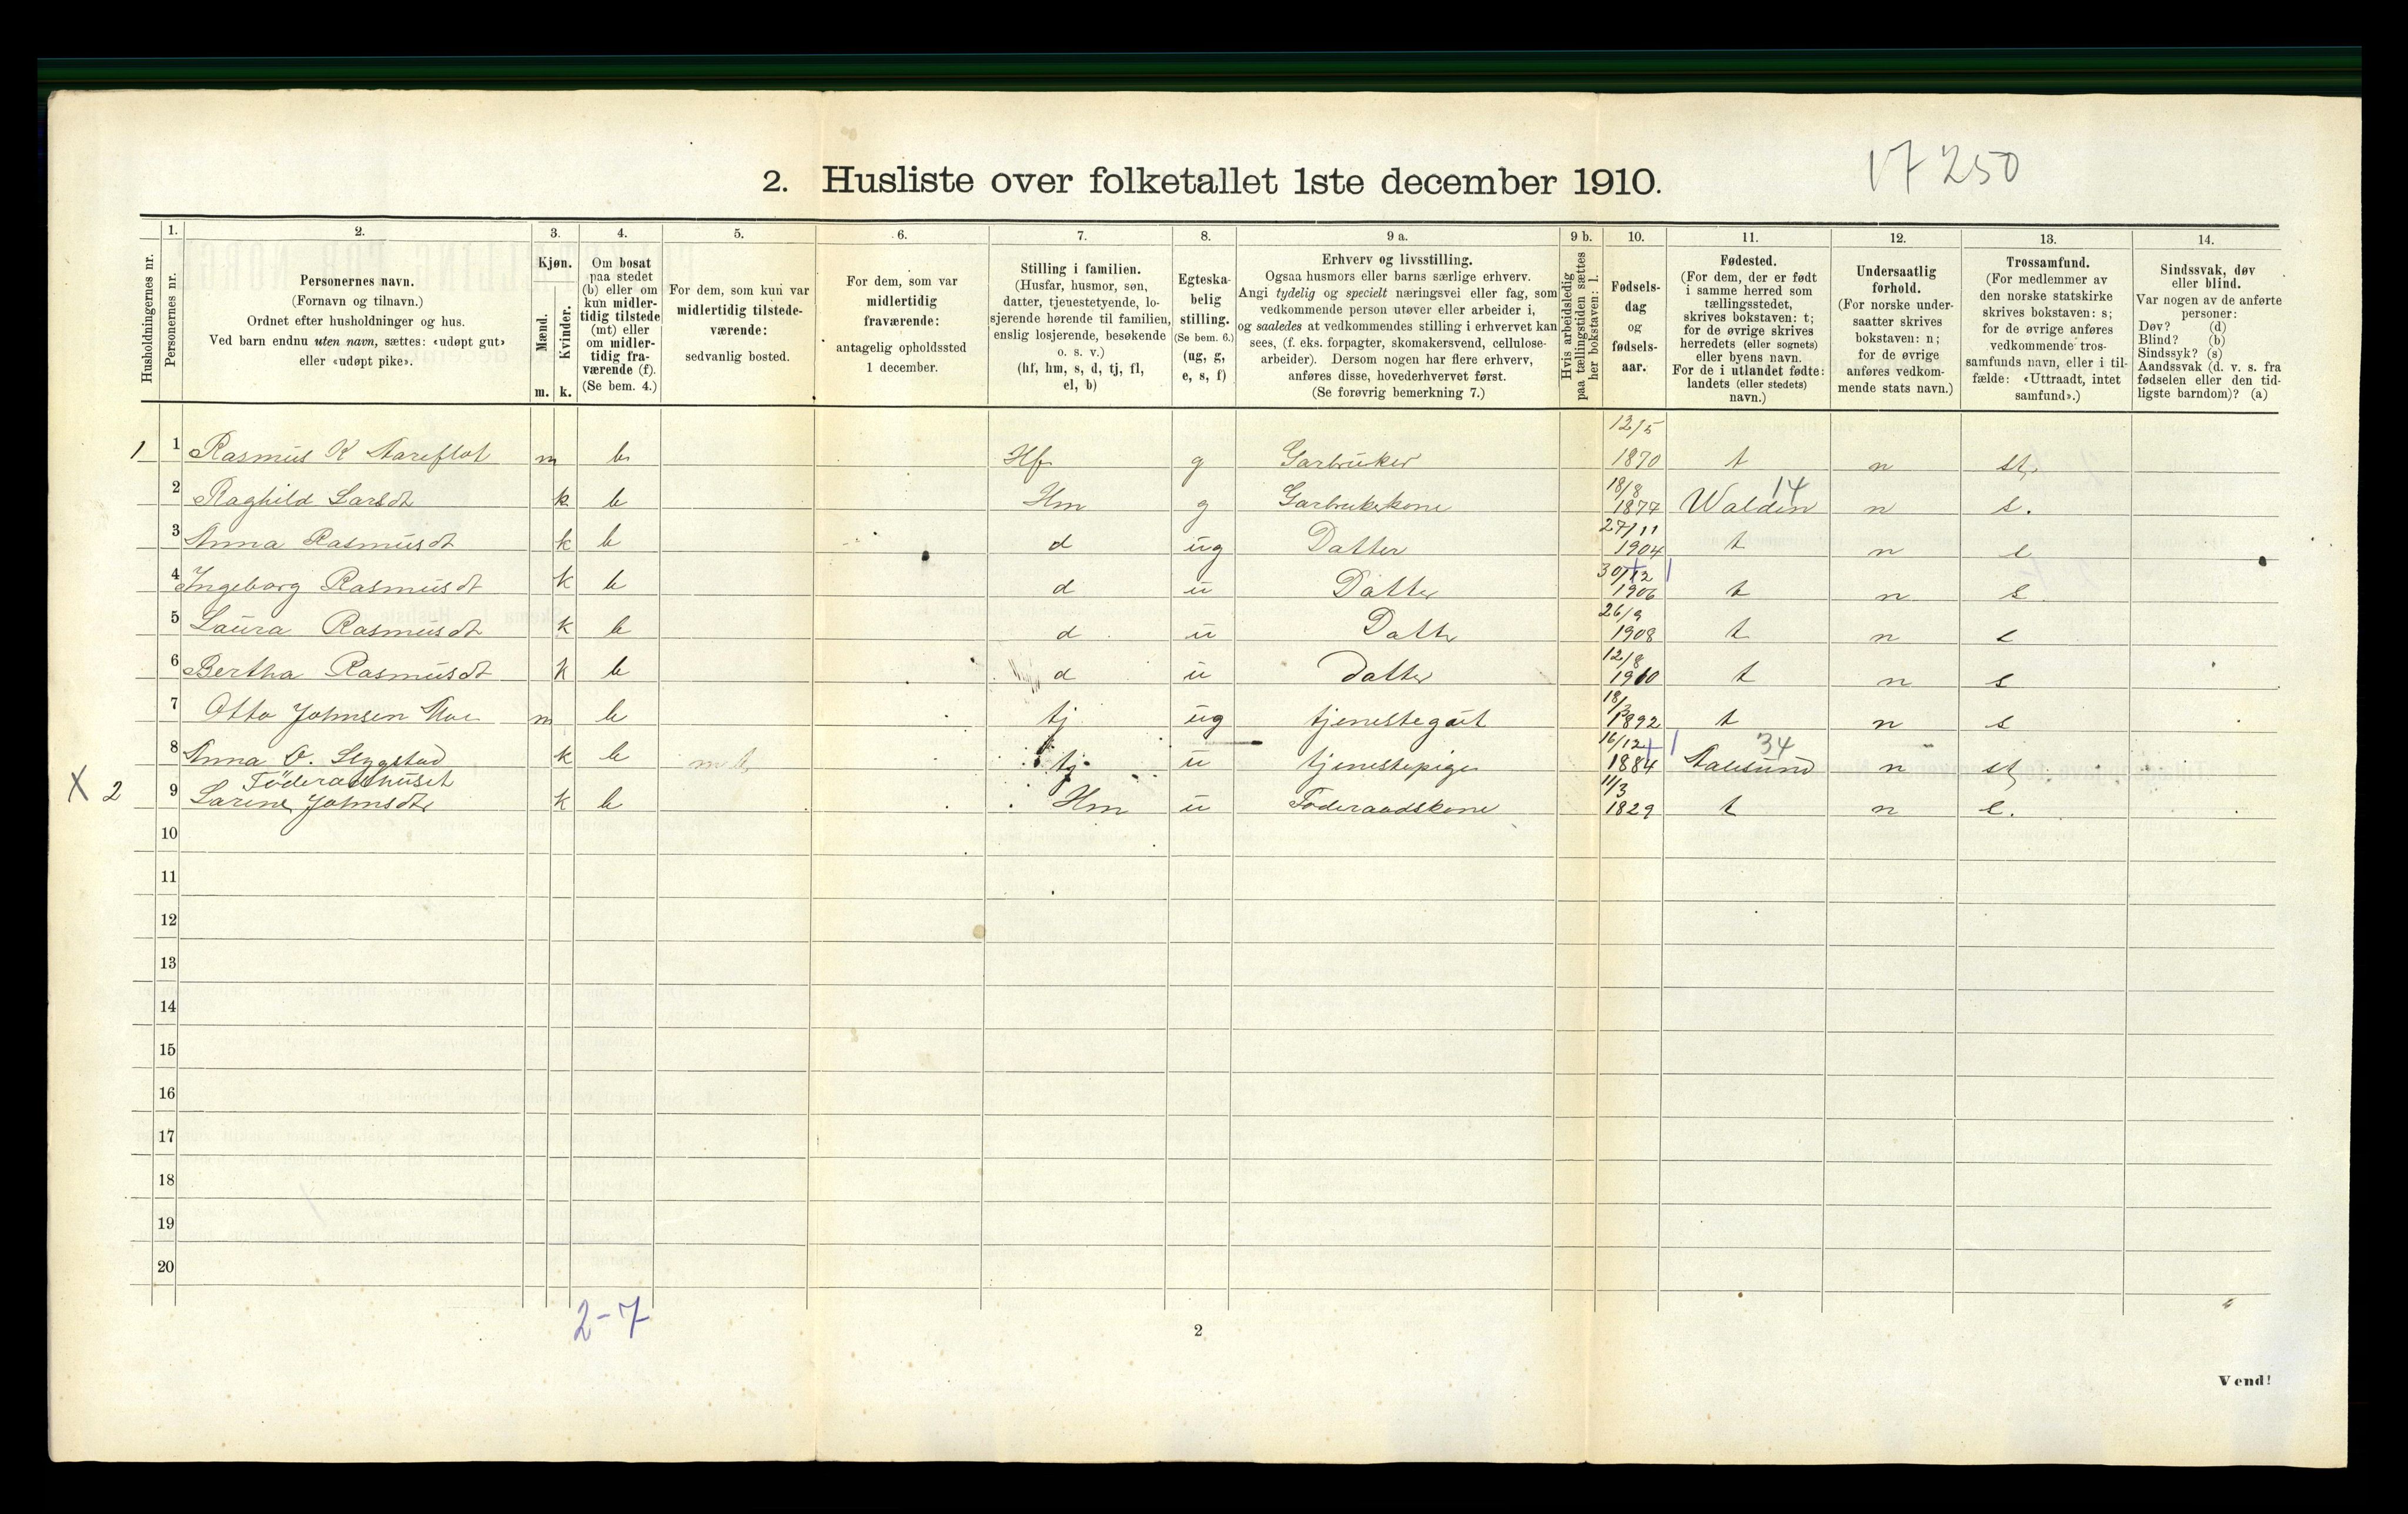 17 250
2. Husliste over folketallet 1ste december 1910.
Husholdningernes nr.
1. Personernes nr.
2. Personernes navn.
(Fornavn og tilnavn.)
Ordnet efter husholdninger og hus.
Ved barn endnu uten navn, sættes: «udøpt gut»
eller «udøpt pike».
3. Kjøn.
Mænd. m.
Kvinder. k.
4. Om bosat
paa stedet
(b) eller om
kun midler-
tidig tilstede
(mt) eller
om midler-
tidig fra-
værende (f).
(Se bem. 4.)
5. For dem, som kun var
midlertidig tilstede-
værende:
sedvanlig bosted.
6. For dem, som var
midlertidig
fraværende:
antagelig opholdssted
1 december.
7. Stilling i familien.
(Husfar, husmor, søn,
datter, tjenestetyende, lo-
sjerende hørende til familien,
enslig losjerende, besøkende
o. s. v.)
(hf, hm, s, d, tj, fl,
el, b)
8. Egteska-
belig
stilling.
(Se bem. 6.)
(ug, g,
e, s, f)
9 a. Erhverv og livsstilling.
Ogsaa husmors eller barns særlige erhverv.
Angi tydelig og specielt næringsvei eller fag, som
vedkommende person utøver eller arbeider i,
og saaledes at vedkommendes stilling i erhvervet kan
sees, (f. eks. forpagter, skomakersvend, cellulose-
arbeider). Dersom nogen har flere erhverv,
anføres disse, hovederhvervet først.
(Se forøvrig bemerkning 7.)
9 b. Hvis arbeidsledig
paa tællingstiden sættes
her bokstaven: l.
10. Fødsels-
dag
og
fødsels-
aar.
11. Fødested.
(For dem, der er født
i samme herred som
tællingsstedet,
skrives bokstaven: t;
for de øvrige skrives
herredets (eller sognets)
eller byens navn.
For de i utlandet fødte:
landets (eller stedets)
navn.)
12. Undersaatlig
forhold.
(For norske under-
saatter skrives
bokstaven: n;
for de øvrige
anføres vedkom-
mende stats navn.)
13. Trossamfund.
(For medlemmer av
den norske statskirke
skrives bokstaven: s;
for de øvrige anføres
vedkommende tros-
samfunds navn, eller i til-
fælde: «Uttraadt, intet
samfund».)
14. Sindssvak, døv
eller blind.
Var nogen av de anførte
personer:
Døv? (d)
Blind? (b)
Sindssyk? (s)
Aandssvak (d. v. s. fra
fødselen eller den tid-
ligste barndom)? (a)
1 1 Rasmus K Stareflot m b Hf g Garbruker 12/5 1870 t n st
2 Raghild Larsdt k b Hm g Garbrukerkone 18/8 1874 Walden 14 n s.
3 Anna Rasmusdt k b d ug Datter 27/11 1904 t n s
4 Ingeborg Rasmusdt k b d u Datter 30/12 1906 t n s
5 Laura Rasmusdt k b d u Datter 26/9 1908 t n s
6 Bertha Rasmusdt k b d u datter 12/8 1910 t n s
7 Otto Johnsen Moe m b tj ug tjenestegut 18/3 1892 t n s
8 Anna O. k b mt tj u tjenestepige 16/12 1884 Aalesund 34 n st
Föderaadhuset
X 2 9 Larine Johnsdt k b Hm u Föderaadskone 11/3 1829 t n s.
10
11
12
13
14
15
16
17
18
19
20
2-7
2
Vend!